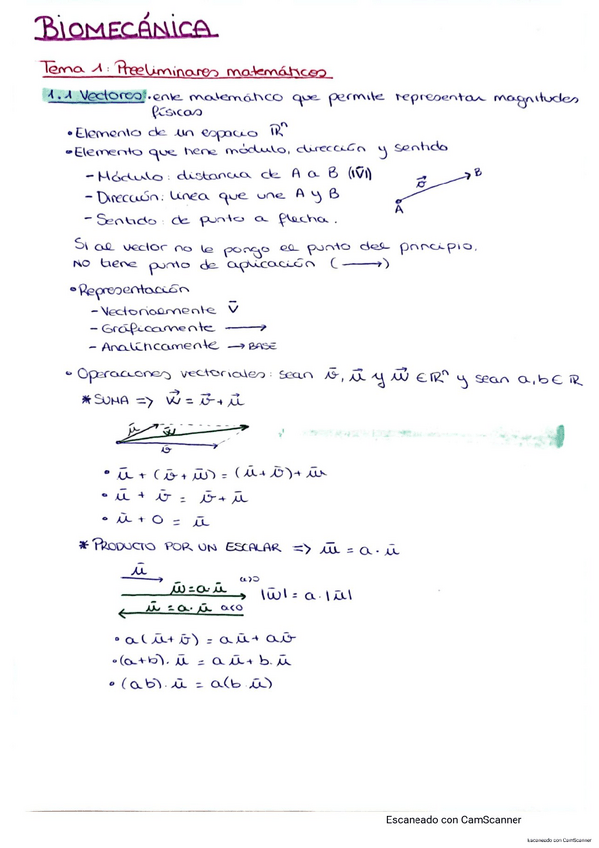 BIOMECÁNICA
Tema 1: Preeliminares matemáticos
1.1 Vectores: ente matemático que permite representar magnitudes
físicas
• Elemento de un espacio ℝⁿ
• Elemento que tiene módulo, dirección y sentido
- Módulo: distancia de A a B (|v̄|)
- Dirección: línea que une A y B
- Sentido: de punto a flecha.
A v⃗ B
Si al vector no le pongo el punto del principio.
NO tiene punto de aplicación (⟶)
• Representación
- Vectorialmente v̄
- Gráficamente ⟶
- Analíticamente → BASE
• Operaciones vectoriales: sean v̄, ū y w⃗ ∈ ℝⁿ y sean a, b ∈ ℝ
* SUMA => w⃗ = v⃗ + ū
ū w̄
v̄
• ū + (v̄ + w̄) = (ū + v̄) + w̄
• ū + v̄ = v̄ + ū
• ū + 0 = ū
* PRODUCTO POR UN ESCALAR => w̄ = a · ū
ū
w̄ = a · ū a>0 |w̄| = a · |ū|
w̄ = a · ū a<0
• a(ū + v̄) = aū + av̄
• (a+b) · ū = aū + b · ū
• (ab) · ū = a(b · ū)
Escaneado con CamScanner
Escaneado con CamScanner